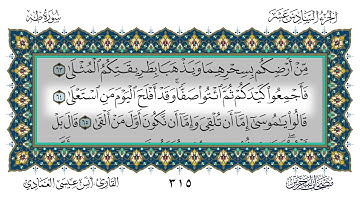 الجزء السادس عشر
سورة طه
مِّنْ أَرْضِكُم بِسِحْرِهِمَا وَيَذْهَبَا بِطَرِيقَتِكُمُ الْمُثْلَىٰ ٦٣
فَأَجْمِعُوا كَيْدَكُمْ ثُمَّ ائْتُوا صَفًّا وَقَدْ أَفْلَحَ الْيَوْمَ مَنِ اسْتَعْلَىٰ ٦٤
قَالُوا يَٰمُوسَىٰ إِمَّا أَن تُلْقِيَ وَإِمَّا أَن نَّكُونَ أَوَّلَ مَنْ أَلْقَىٰ ٦٥ قَالَ بَلْ
القارئ: أنس عيسى العمادي
٣١٥